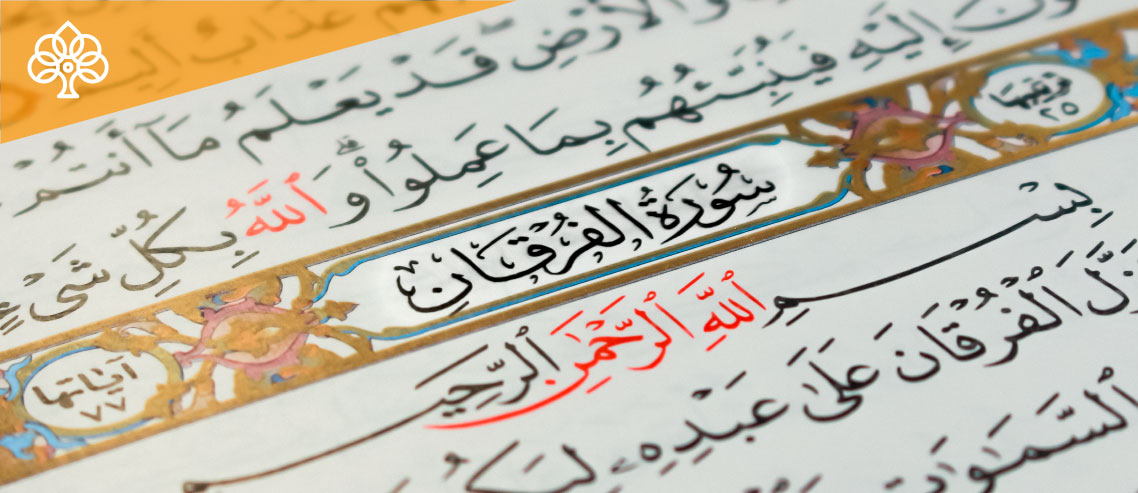 عَذَابٌ أَلِيمٌ
وَٱلۡأَرۡضِ قَدۡ يَعۡلَمُ مَآ أَنتُمۡ
إِلَيۡهِ فَيُنَبِّئُهُم بِمَا عَمِلُواْۗ وَٱللَّهُ بِكُلِّ شَيۡءٍ
ترتيبها ٢٥
سُورَةُ الفُرْقَانِ
آياتها ٧٧
بِسۡمِ ٱللَّهِ ٱلرَّحۡمَٰنِ ٱلرَّحِيمِ
نَزَّلَ ٱلۡفُرۡقَانَ عَلَىٰ عَبۡدِهِۦ لِيَكُونَ
ٱلسَّمَٰوَٰتِ